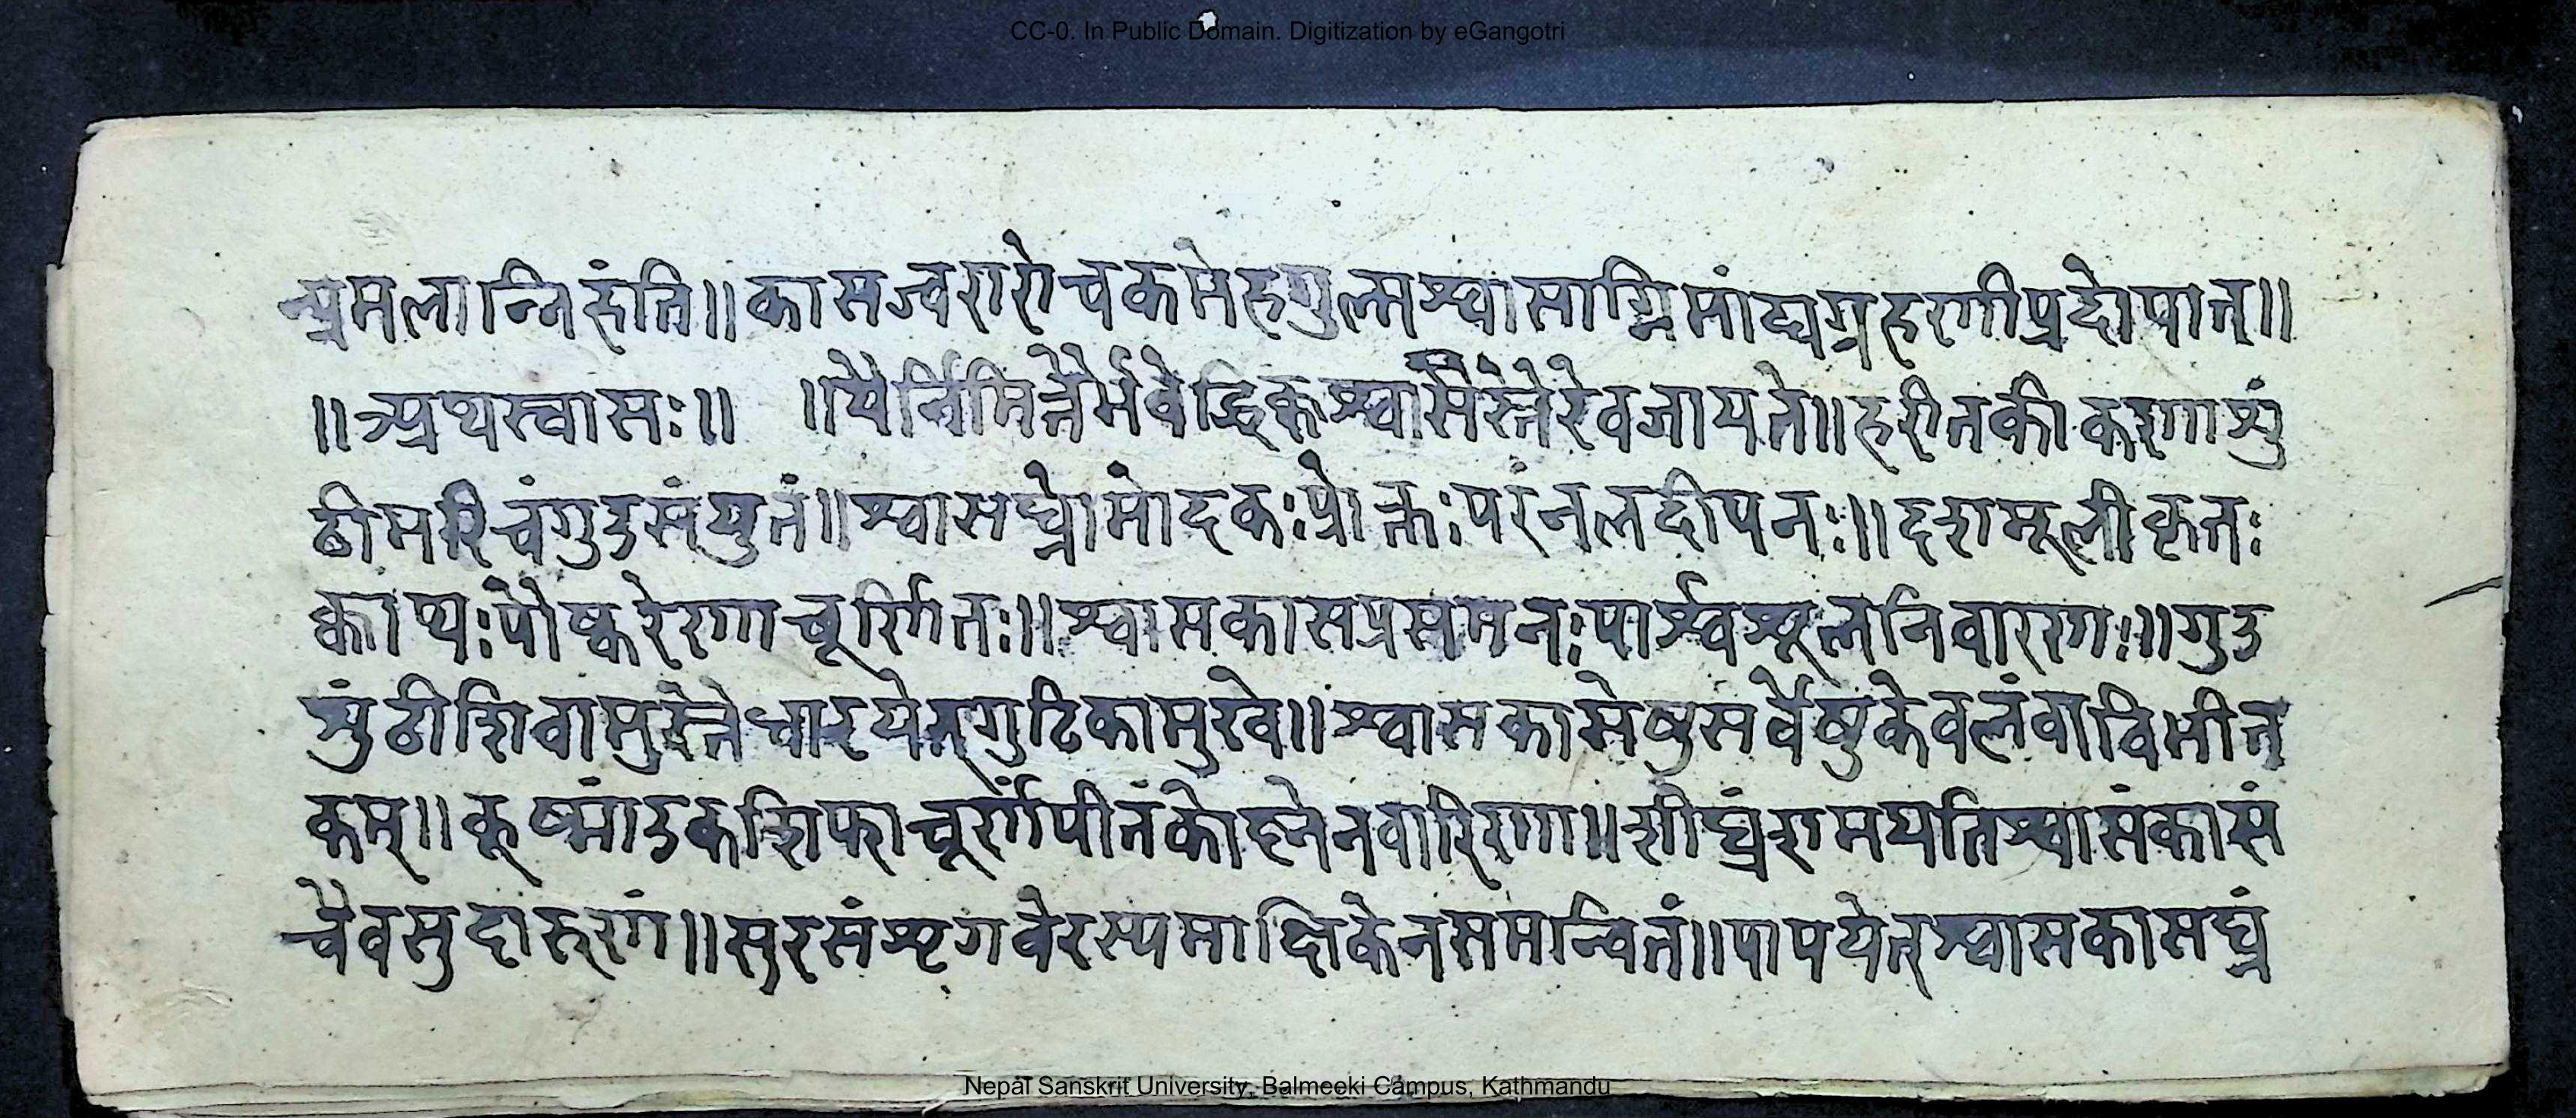 CC-0. In Public Domain. Digitization by eGangotri
न्प्रमलान्निहंति॥ कासज्वरारोचकमेहगुल्मश्वासाग्निमांद्यग्रहणीप्रदोषान्॥
॥अथस्वासः॥ ॥यैर्निमित्तैर्भवेद्धिक्कश्वासैस्तैरेवजायते॥हरीतकीकणाशुं
ठीमरिचंगुडसंयुतं॥श्वासघ्नोमोदकःप्रोक्तःपरंनलदीपनः॥दशमूलीकृतः
क्वाथ्यःपौष्करेणचूर्णितः॥श्वासकासप्रसमनःपार्श्वश्रूलनिवारणः॥गुड
सुंठीशिवामुस्तैधारयेत्गुटिकामुखे॥श्वासकासेषुसर्वेषुकेवलंवाविभीत
कम्॥कूष्मांडकशिफाचूर्णंपीतंकोष्नेनवारिणा॥शीघ्रंशमयतिश्वासंकासं
चैवसुदारुणं॥सुरसंशृगवेरस्यमाक्षिकेनसमन्वितं॥पापयेत्श्वासकासघ्नं
Nepal Sanskrit University, Balmeeki Campus, Kathmandu